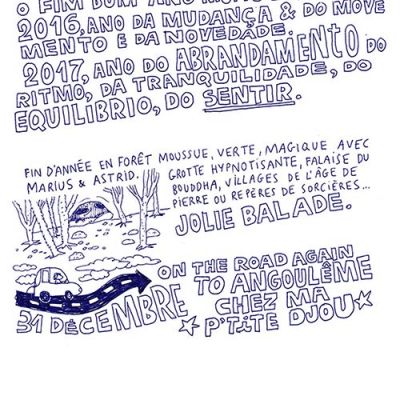 O FIM DUM ANO
2016, ANO DA MUDANÇA & DO MOVE
MENTO E DA NOVEDADE.
2017, ANO DO ABRANDAMENTO DO
RITMO, DA TRANQUILIDADE, DO
EQUILIBRIO, DO SENTIR.
FIN D'ANNÉE EN FORÊT MOUSSUE, VERTE, MAGIQUE AVEC
MARIUS & ASTRID. GROTTE HYPNOTISANTE, FALAISE DU
BOUDDHA, VILLAGES DE L'ÂGE DE
PIERRE OU REPÈRES DE SORCIÈRES...
JOLIE BALADE.
ON THE ROAD AGAIN
TO ANGOULÊME
CHEZ MA
P'TITE DJOU
31 DÉCEMBRE